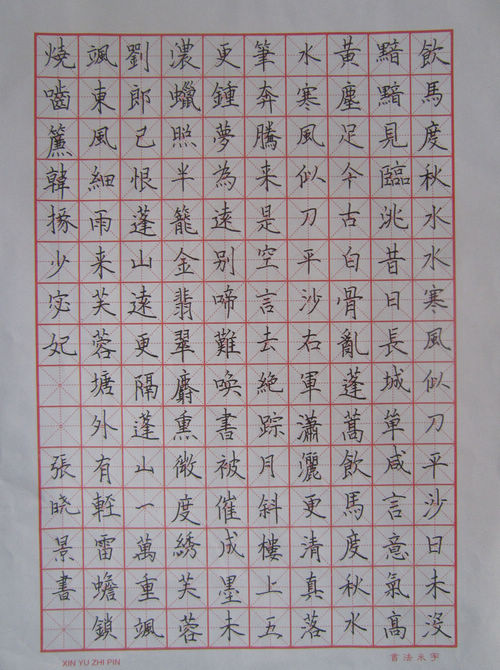 飲馬度秋水水寒風似刀平沙日未没
黯黯見臨洮昔日長城單咸言意氣高
黃塵足今古白骨亂蓬蒿飲馬度秋水
水寒風似刀平沙右軍瀟灑更清真落
筆奔騰来是空言去絶踪月斜樓上五
更鍾夢為遠别啼難喚書被催成墨未
濃蠟照半籠金翡翠麝熏微度綉芙蓉
劉郎已恨蓬山遠更隔蓬山一萬重颯
颯東風細雨来芙蓉塘外有輕雷蟾鎖
燒嚙簾韓掾少宓妃 張晓景書
XIN YU ZHI PIN 書法永字